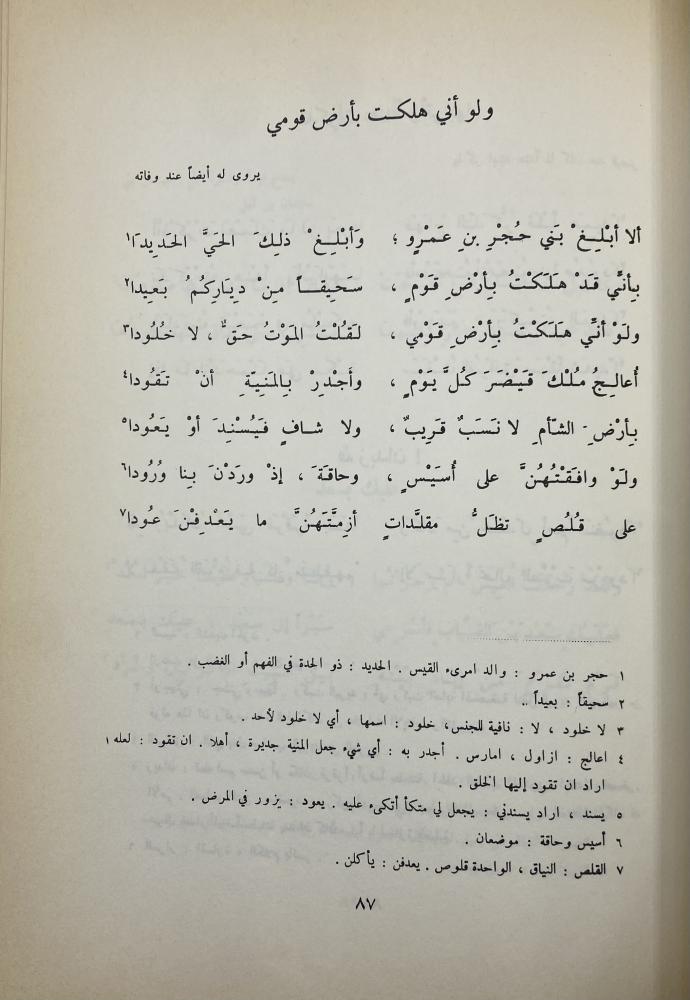 ولو أني هلكت بأرض قومي
يروى له أيضاً عند وفاته
ألا أبْلِغْ بَني حُجْرِ بنِ عَمْرٍو ؛ وَأبْلِغْ ذلِكَ الحَيَّ الحَديدَا١
بِأنّي قَدْ هَلَكْتُ بِأرْضِ قَوْمٍ ، سَحِيقاً مِنْ دِيَارِكُمُ بَعِيدا٢
ولَوْ أنّي هَلَكْتُ بِأرْضِ قَوْمي ، لَقُلْتُ المَوْتُ حَقٌّ ، لا خُلُودا٣
أُعالِجُ مُلْكَ قَيْصَرَ كُلَّ يَوْمٍ ، وأجْدِرْ بِالمَنِيّةِ أنْ تَقُودا٤
بِأرْضِ الشّأمِ لا نَسَبٌ قَرِيبٌ ، ولا شافٍ فَيُسْنِدَ أوْ يَعُودا٥
ولَوْ وافَقْتُهُنَّ على أُسَيْسٍ ، وحاقَةَ ، إذْ ورَدْنَ بِنا وُرُودا٦
على قُلُصٍ تظَلُّ مقلَّداتٍ أزِمّتَهُنَّ ما يَعْدِفْنَ عُودا٧
١ حجر بن عمرو : والد امرىء القيس . الحديد : ذو الحدة في الفهم أو الغضب .
٢ سحيقاً : بعيداً .
٣ لا خلود ، لا : نافية للجنس، خلود : اسمها ، أي لا خلود لأحد .
٤ اعالج : ازاول ، امارس . أجدر به : أي شيء جعل المنية جديرة ، أهلا . ان تقود : لعله
اراد ان تقود إليها الخلق .
٥ يسند ، اراد يسندني : يجعل لي متكأ أتكىء عليه . يعود : يزور في المرض .
٦ أسيس وحاقة : موضعان .
٧ القلص : النياق ، الواحدة قلوص . يعدفن : يأكلن .
٨٧